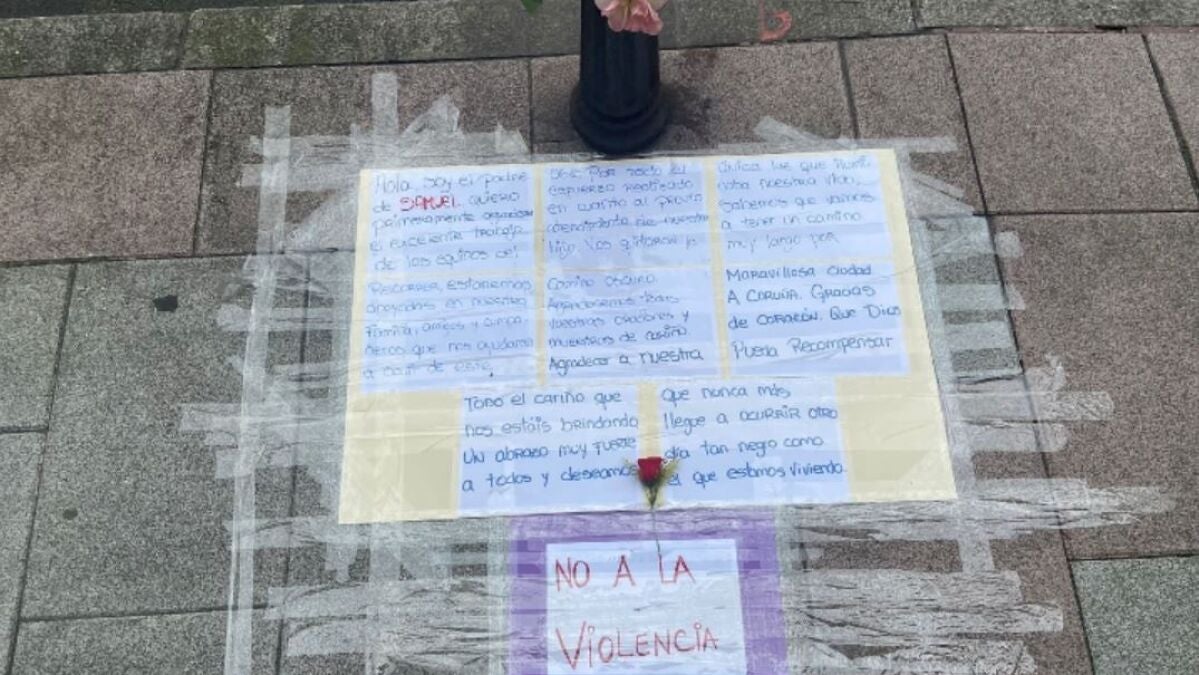 Hola, soy el padre
de SAMUEL, quiero
primeramente agradecer
el excelente trabajo
de los equipos de
por todo el
esfuerzo realizado
en cuanto al
de nuestro
hijo. Nos quitaron la
única luz que
naba nuestra vida,
sabemos que vamos
a tener un camino
muy largo por
Recorrer, estaremos
apoyados en nuestra
familia, amigos y
que nos ayudaran
a salir de este,
camino oscuro.
Agradecemos todas
vuestras oraciones y
muestras de cariño.
Agradecer a nuestra
Maravillosa ciudad
A Coruña. Gracias
de corazón. Que Dios
Pueda Recompensar
Todo el cariño que
nos estáis brindando
un abrazo muy fuerte
a todos y deseamos
que nunca más
llegue a ocurrir otro
día tan negro como
el que estamos viviendo.
NO A LA
VIOLENCIA